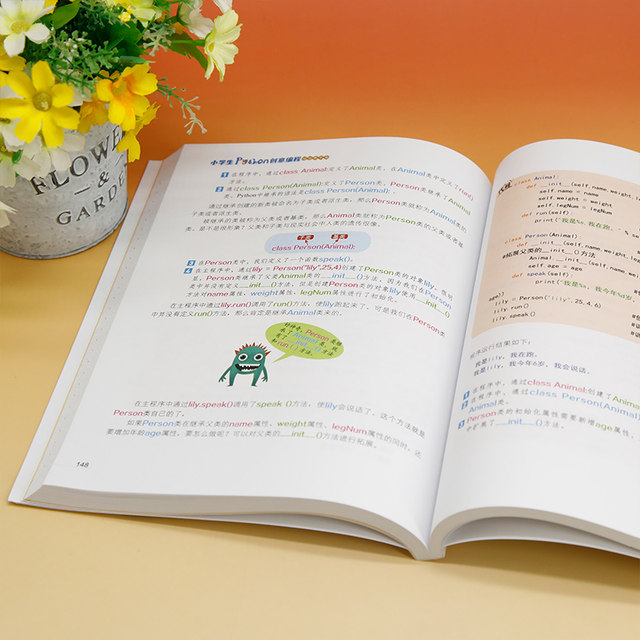 FLOWER
&
GARDEN
小学生Python创意编程
1 在程序中，通过class Animal定义了Animal类，在Animal类中定义了run()
方法。
2 通过class Person(Animal);定义了Person类，Person类继承了Animal
类。Python中继承的语法是class Person(Animal);
通过继承创建的新类被命名为子类或者派生类，那么Person类就称为Animal类的
子类或者派生类。
被继承的类被称为父类或者基类，那么Animal类就称为Person类的父类或者基
类，是不是很形象？父类和子类与现实社会中人类的遗传很像。
子类 父类
class Person(Animal);
3 在Person类中，我们定义了一个函数speak()。
4 在主程序中，通过lily = Person("lily",25,4)创建了Person类的对象lily。很明
显，Person类继承了父类Animal类的__init__()方法，因为我们在Person
类中并没有定义__init__()方法，但是创建Person类的对象lily使用__init__()
方法对name属性、weight属性、legNum属性进行了初始化。
在主程序中通过lily.run()调用了run()方法，使lily跑起来了，可是我们在Person类
中并没有定义run()方法，那么肯定是继承Animal类来的。
好神奇，Person类继
承了Animal类，
有了__init__()方法
和run()方法。
在主程序中通过lily.speak()调用了speak ()方法，使lily会说话了，这个方法就是
Person类自己的了。
如果Person类在继承父类的name属性、weight属性、legNum属性的同时，还
要增加年龄age属性，要怎么做呢？可以对父类的__init__()方法进行拓展。
148
class Animal:
def __init__(self,name,weight,le
self.name = name
self.weight = weight
self.legNum = legNum
def run(self):
print("我是%s，我在跑。" % se
class Person(Animal):
def __init__(self,name,weight,leg
#拓展父类的__init__()方法
Animal.__init__(self,name,we
self.age = age
def speak(self):
print("我是%s，我今年%
age))
lily = Person("lily",25,4,6)
lily.run()
lily.speak()
程序运行结果如下：
我是lily，我在跑。
我是lily，我今年6岁，我会说话。
1 在程序中，通过class Animal:创建了Anima
2 在程序中，通过class Person(Animal)
Animal类。
3 Person类的初始化属性需要新增age属性，
中扩展了__init__()方法。